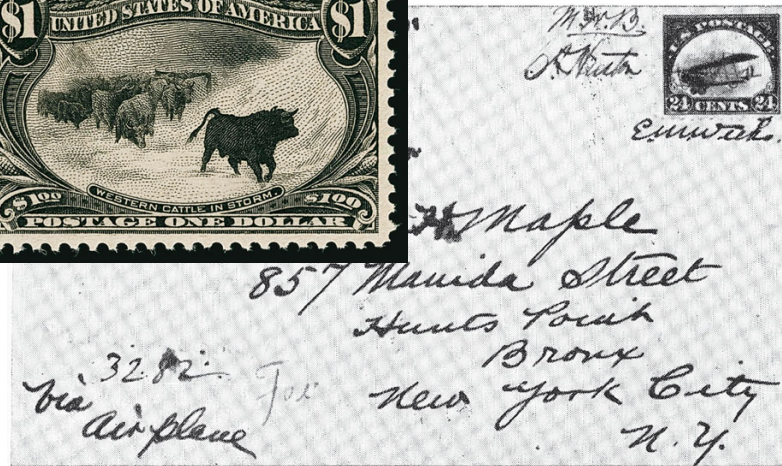 $1 UNITED STATES OF AMERICA $1
WESTERN CATTLE IN STORM.
$100 $100
POSTAGE ONE DOLLAR
U.S. POSTAGE
24 CENTS 24
Maple
857 Manida Street
Hunts Point
Bronx
New York City
N.Y.
3282
Via
Air plane
For